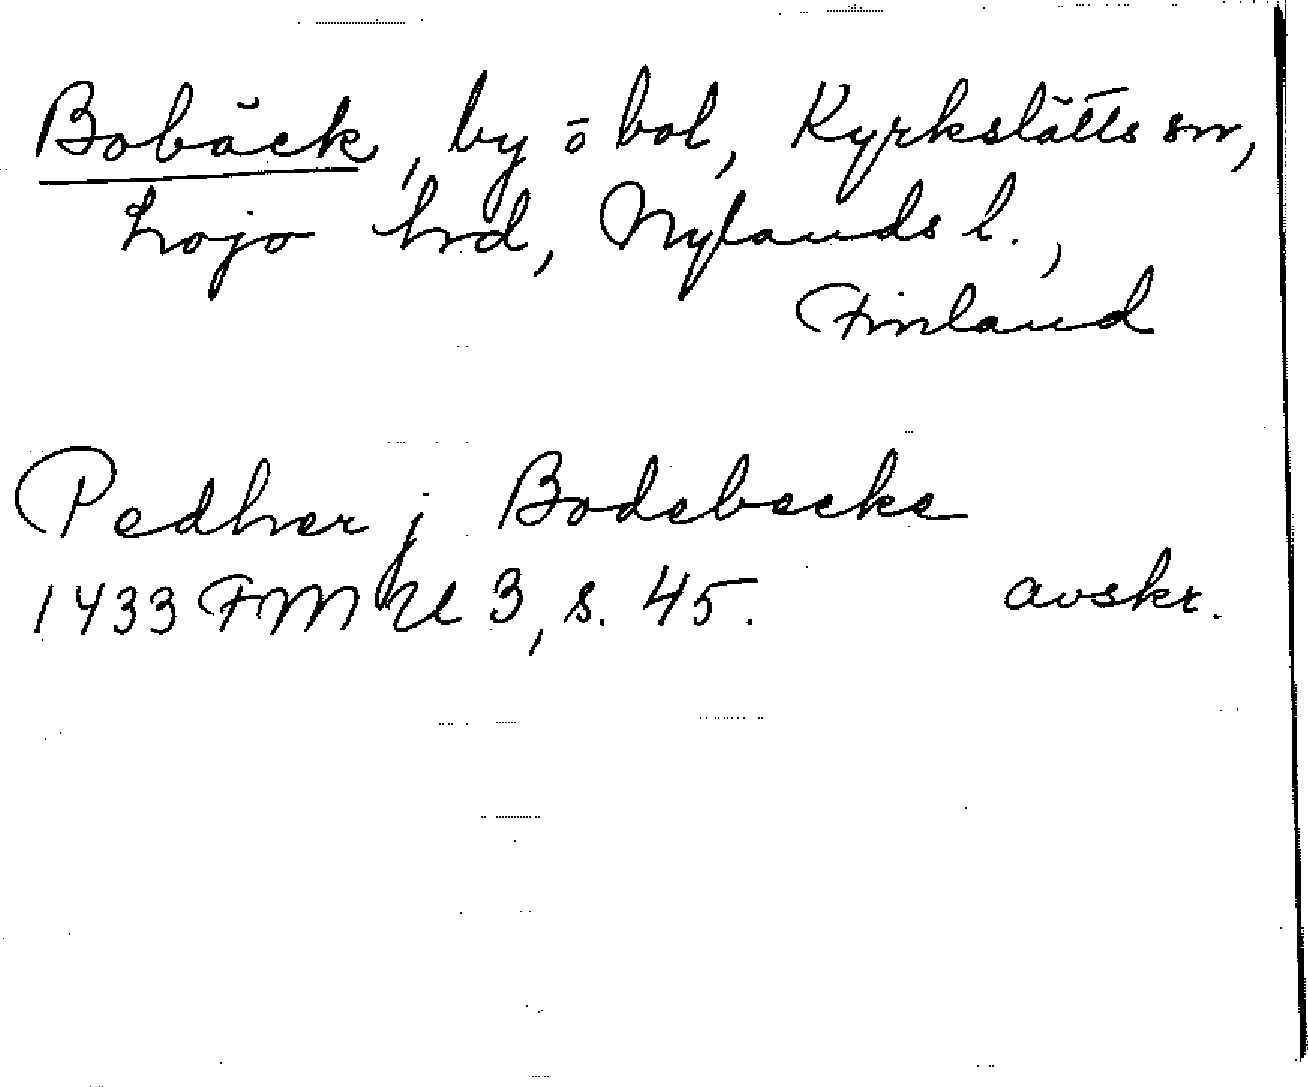 Bobäck, by o bol, Kyrkslätts sn,
Lojo hrd, Nylands l.,
Finland
Pedher j Bodebecke
1433 FMU 3, s. 45. avskr.